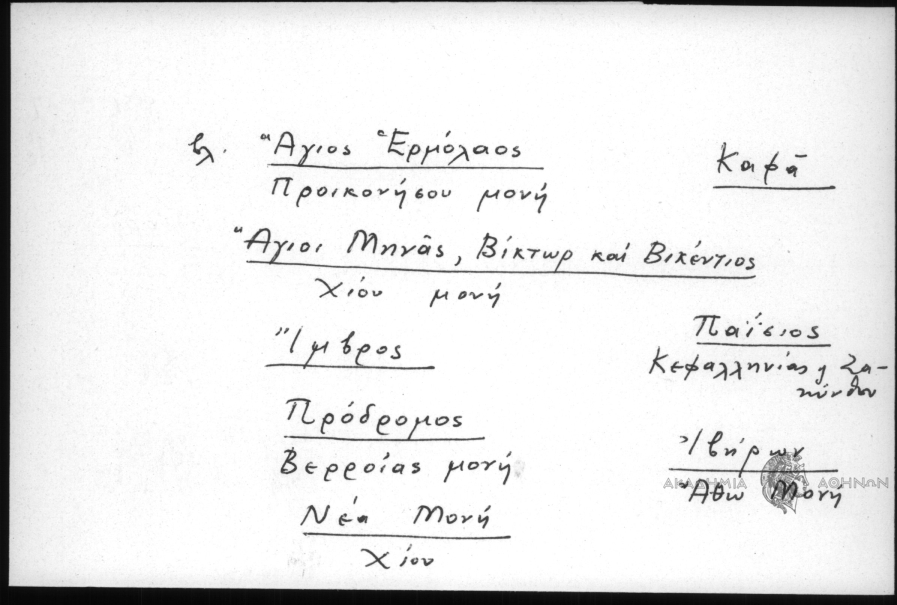 βλ. Ἅγιος Ἑρμόλαος
Προικονήσου μονή
Ἅγιοι Μηνᾶς, Βίκτωρ καί Βικέντιος
Χίου μονή
Ἴμβρος
Πρόδρομος
Βερροίας μονή
Νέα Μονή
Χίου
Καφᾶ
Παΐσιος
Κεφαλληνίας ἤ Ζα-
κύνθου
Ἰβήρων
Ἄθω Μονή
ΑΚΑΔΗΜΙΑ ΑΘΗΝΩΝ